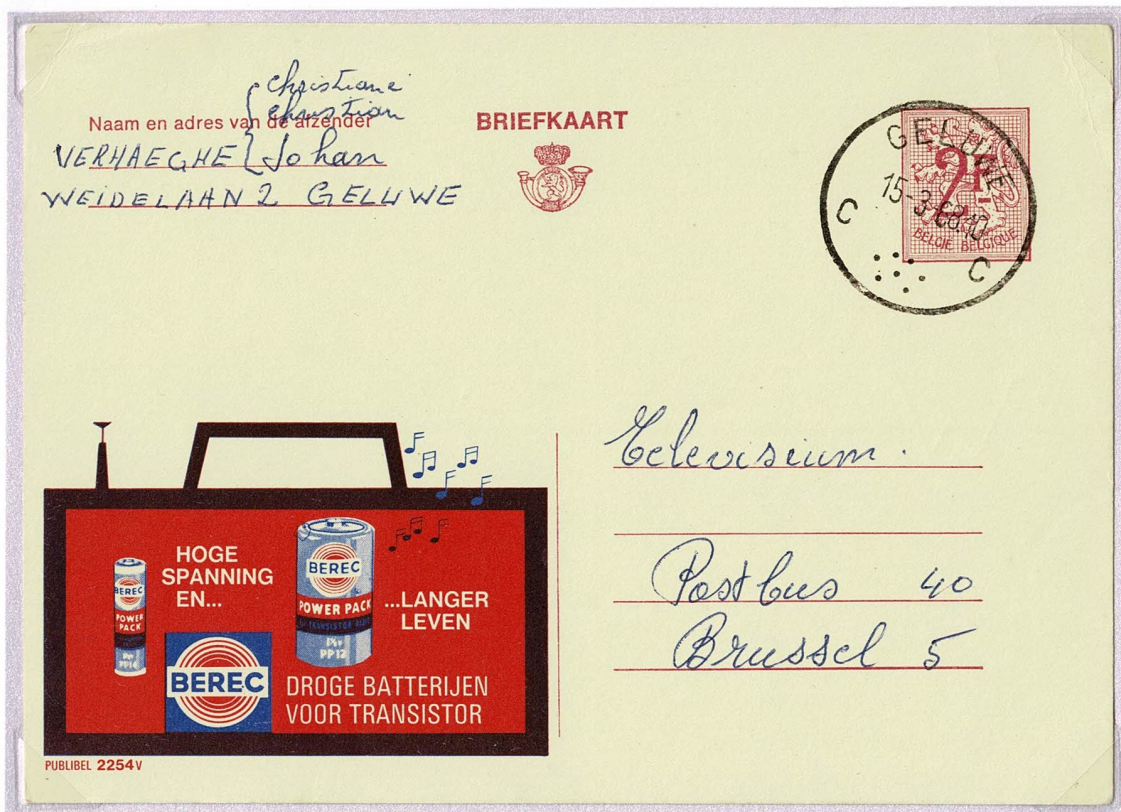 Christiane
Christian
Naam en adres van de afzender
VERHAEGHE { Johan
WEIDELAAN 2 GELUWE
BRIEFKAART
GELUWE
15-3-68.10
C C
2F
BELGIË BELGIQUE
Televisium.
Postbus 40
Brussel 5
HOGE
SPANNING
EN...
BEREC
POWER
PACK
PP14
BEREC
POWER PACK
PP12
...LANGER
LEVEN
BEREC
DROGE BATTERIJEN
VOOR TRANSISTOR
PUBLIBEL 2254V